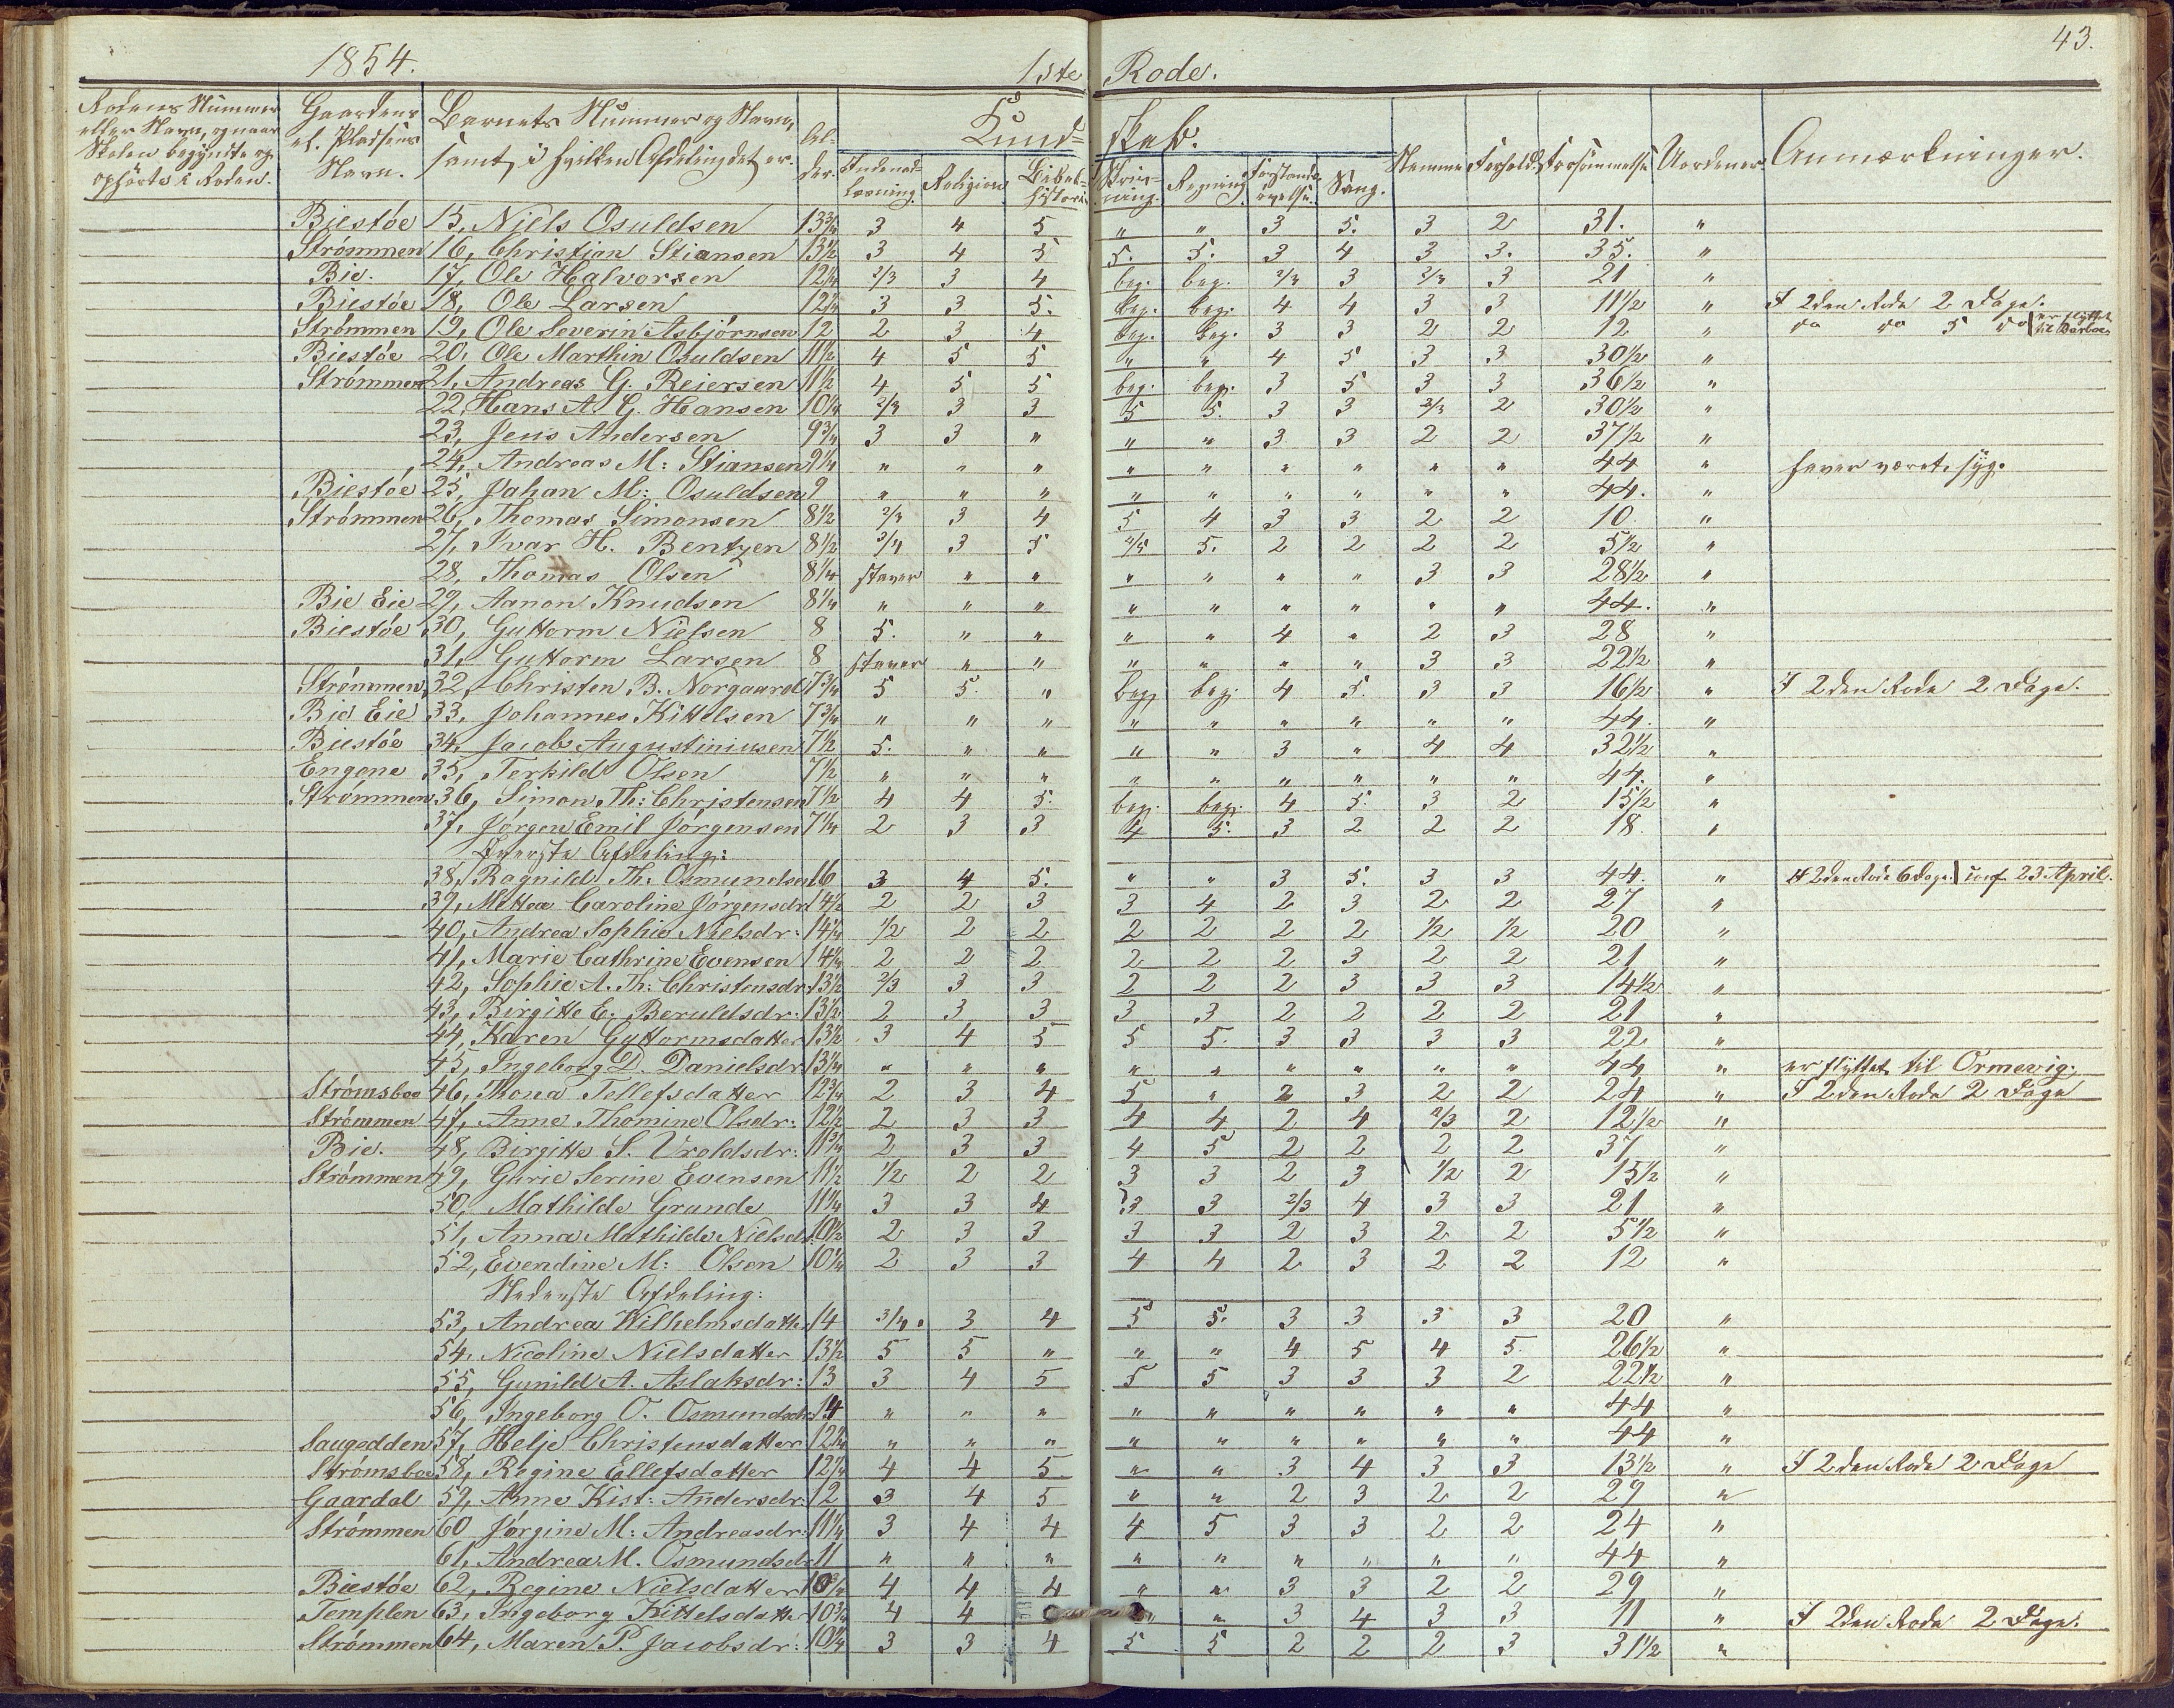 43.
1854. 1ste Rode.
Rodens Nummer eller Navn, og naar Skolen begyndte og ophörte i Roden. Gaardens el. Pladsens Navn. Barnets Nummer og Navn, samt i hvilken Afdeling det er. Alder. Kundskab. Indenadlæsning. Religion. Bibelhistorie. Skrivning. Regning. Forstandsøvelse. Sang. Nemme Forhold. Forsömmelse Uordener. Anmærkninger.
Biestøe 15, Niels Osuldsen 13¾ 3 4 5 " " 3 5. 3 2 31. "
Strömmen 16, Christian Stiansen 13½ 3 4 5 5. 5. 3 4 3 3. 35. "
Bie. 17, Ole Halvorsen 12¼ 2/3 3 4 beg. beg. 2/3 3 2/3 3 21 "
Biestøe 18, Ole Larsen 12¼ 3 3 5. beg. beg. 4 4 3 3 11½ " I 2den Rode 2 Dage.
Strömmen 19, Ole Severin Asbjörnsen 12 2 3 4 beg. beg. 3 3 2 2 12 " do do 5 do er flyttet til Barboe
Biestøe 20, Ole Marthin Osuldsen 11½ 4 5 5 " " 4 5 3 3 30½ "
Strömmen 21, Andreas G. Reiersen 11½ 4 5 5 beg. beg. 3 5 3 3 36½ "
22, Hans A. G. Hansen 10¼ 2/3 3 3 5 5. 3 3 2/3 2 30½ "
23, Jens Andersen 9¾ 3 3 " " " 3 3 2 2 37½ "
24, Andreas M: Stiansen 9¼ " " " " " " " " " 44 " haver været syg.
Biestøe 25, Johan M: Osuldsen 9 " " " " " " " " " 44. "
Strömmen 26, Thomas Simonsen 8½ 2/3 3 4 5 4 3 3 2 2 10 "
27, Ivar H. Bentzen 8½ 3/4 3 5 4/5 5. 2 2 2 2 5½ "
28, Thomas Olsen 8¼ staver " " " " " " 3 3 28½ "
Bie Eie 29, Aanon Knudsen 8¼ " " " " " " " " " 44. "
Biestøe 30, Guttorm Nielsen 8 5. " " " " 4 " 2 3 28 "
31, Guttorm Larsen 8 staver " " " " " " 3 3 22½ "
Strömmen 32, Christen B. Norgaard 7¾ 5 5. " beg. beg. 4 5. 3 3 16½ " I 2den Rode 2 Dage.
Bie Eie 33, Johannes Kittelsen 7¾ " " " " " " " " " 44. "
Biestøe 34, Jacob Augustiniusen 7½ 5. " " " " 3 " 4 4 32½ "
Engene 35, Terkild Olsen 7½ " " " " " " " " " 44. "
Strömmen 36, Simon Th: Christensen 7½ 4 4 5. beg. beg. 4 5. 3 2 15½ "
37, Jörgen Emil Jörgensen 7¼ 2 3 3 4 5. 3 2 2 2 18. "
Överste Afdeling:
38, Ragnild Th. Osmundsen 16 3 4 5. " " 3 5. 3 3 44. " I 2den Rode 6 Dage. conf. 23 April.
39, Mettea Caroline Jörgensdr 14½ 2 2 3 3 4 2 3 2 2 27 "
40, Andrea Sophie Nielsdr: 14¼ 1/2 2 2 2 2 2 2 1/2 1/2 20 "
41, Marie Cathrine Evensen 14¼ 2 2 2 2 2 2 3 2 2 21 "
42, Sophie A. Th: Christensdr: 13½ 2/3 3 3 2 2 2 3 3 3 14½ "
43, Birgitte E. Beruldsdr: 13½ 2 3 3 3 3 2 2 2 2 21 "
44, Karen Guttormsdatter 13½ 3 4 5 5 5. 3 3 3 3 22 "
45, Ingeborg D. Danielsdr: 13¼ " " " " " " " " " 44 " er flyttet til Ormevig.
Strömsboe 46, Thona Tellefsdatter 12¾ 2 3 4 5 " 2 3 2 2 24 " I 2den Rode 2 Dage
Strömmen 47, Anne Thomine Olsdr: 12½ 2 3 3 4 4 2 4 2/3 2 12½ "
Bie. 48, Birgitte S. Uroldsdr: 11¾ 2 3 3 4 5 2 2 2 2 37 "
Strömmen 49, Gurie Serine Evensen 11½ 1/2 2 2 3 3 2 3 1/2 2 15½ "
50, Mathilde Grunde 11¼ 3 3 4 3 3 2/3 4 3 3 21 "
51, Anna Mathilde Nielsdr 10½ 2 3 3 3 3 2 3 2 2 5½ "
52, Evendine M: Olsen 10¼ 2 3 3 4 4 2 3 2 2 12 "
Nederste Afdeling:
53, Andrea Wilhelmsdatter 14 3/4 3 4 5 5. 3 3 3 3 20 "
54, Nicoline Nielsdatter 13½ 5 5 " " " 4 5 4 5 26½ "
55, Gunild A. Aslaksdr: 13 3 4 5 5 5 3 3 3 2 22½ "
56, Ingeborg O. Osmundsdr 14 " " " " " " " " " 44 "
Saugedden 57, Helje Christensdatter 12¾ " " " " " " " " " 44 "
Strömsboe 58, Regine Ellefsdatter 12¼ 4 4 5 " " 3 4 3 3 13½ " I 2den Rode 2 Dage
Gaardal 59, Anne Kist: Andersdr: 12 3 4 5 " " 2 3 2 2 29 "
Strömmen 60 Jörgine M: Andreasdr: 11¼ 3 4 4 4 5 3 3 2 2 24 "
61, Andrea M. Osmundsdr 11 " " " " " " " " " 44 "
Biestøe 62, Regine Nielsdatter 10¾ 4 4 4 " " 3 3 2 2 29 "
Templen 63, Ingeborg Kittelsdatter 10¾ 4 4 " " 3 4 3 3 11 " I 2den Rode 2 Dage.
Strömmen 64, Maren P. Jacobsdr: 10¼ 3 3 4 5 5 2 2 2 3 31½ "